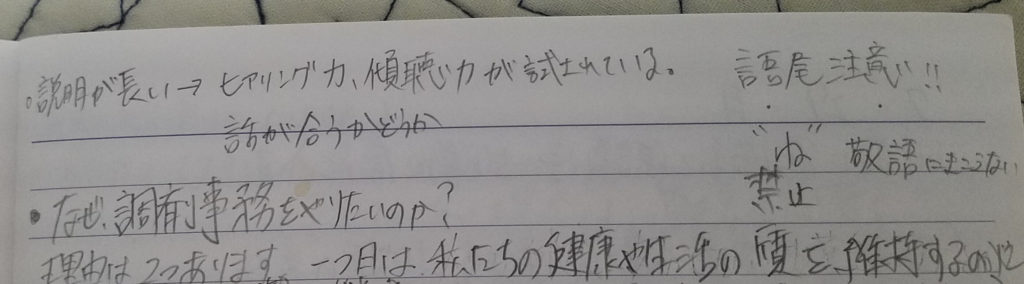 。説明が長い→ヒアリング力、傾聴力が試されている。
話が合うかどうか
語尾注意!!
"ね" 敬語にきこえない
禁止
• なぜ、調剤事務をやりたいのか?
理由は2つあります。一つ目は、私たちの健康や生活の質を維持するのに